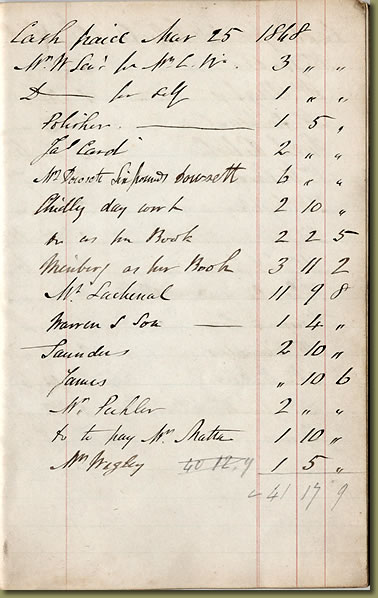 Cash paid Mar 25 1848
Mr W Senr for Mr C. 3 " "
D—— for self 1 " "
Polisher —— 1 5 "
Jas Card 2 " "
Mr Dowsett Six pounds Dowsett 6 " "
Chidley day work 2 10 "
Do as per Book 2 2 5
as per Book 3 11 2
Mr Lachenal 11 9 8
Warren & Son —— 1 4 "
Saunders 2 10 "
James " 10 6
Mr 2 " "
Do to pay Mr 1 10 "
Mrs 40 12 9 1 5 "
41 17 9